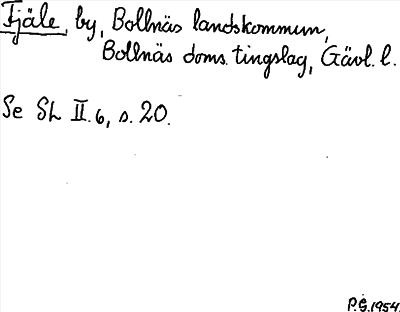 Fjäle, by, Bollnäs landskommun,
Bollnäs doms. tingslag, Gävl. l.
Se SL II.6, s. 20.
P.G. 1954.